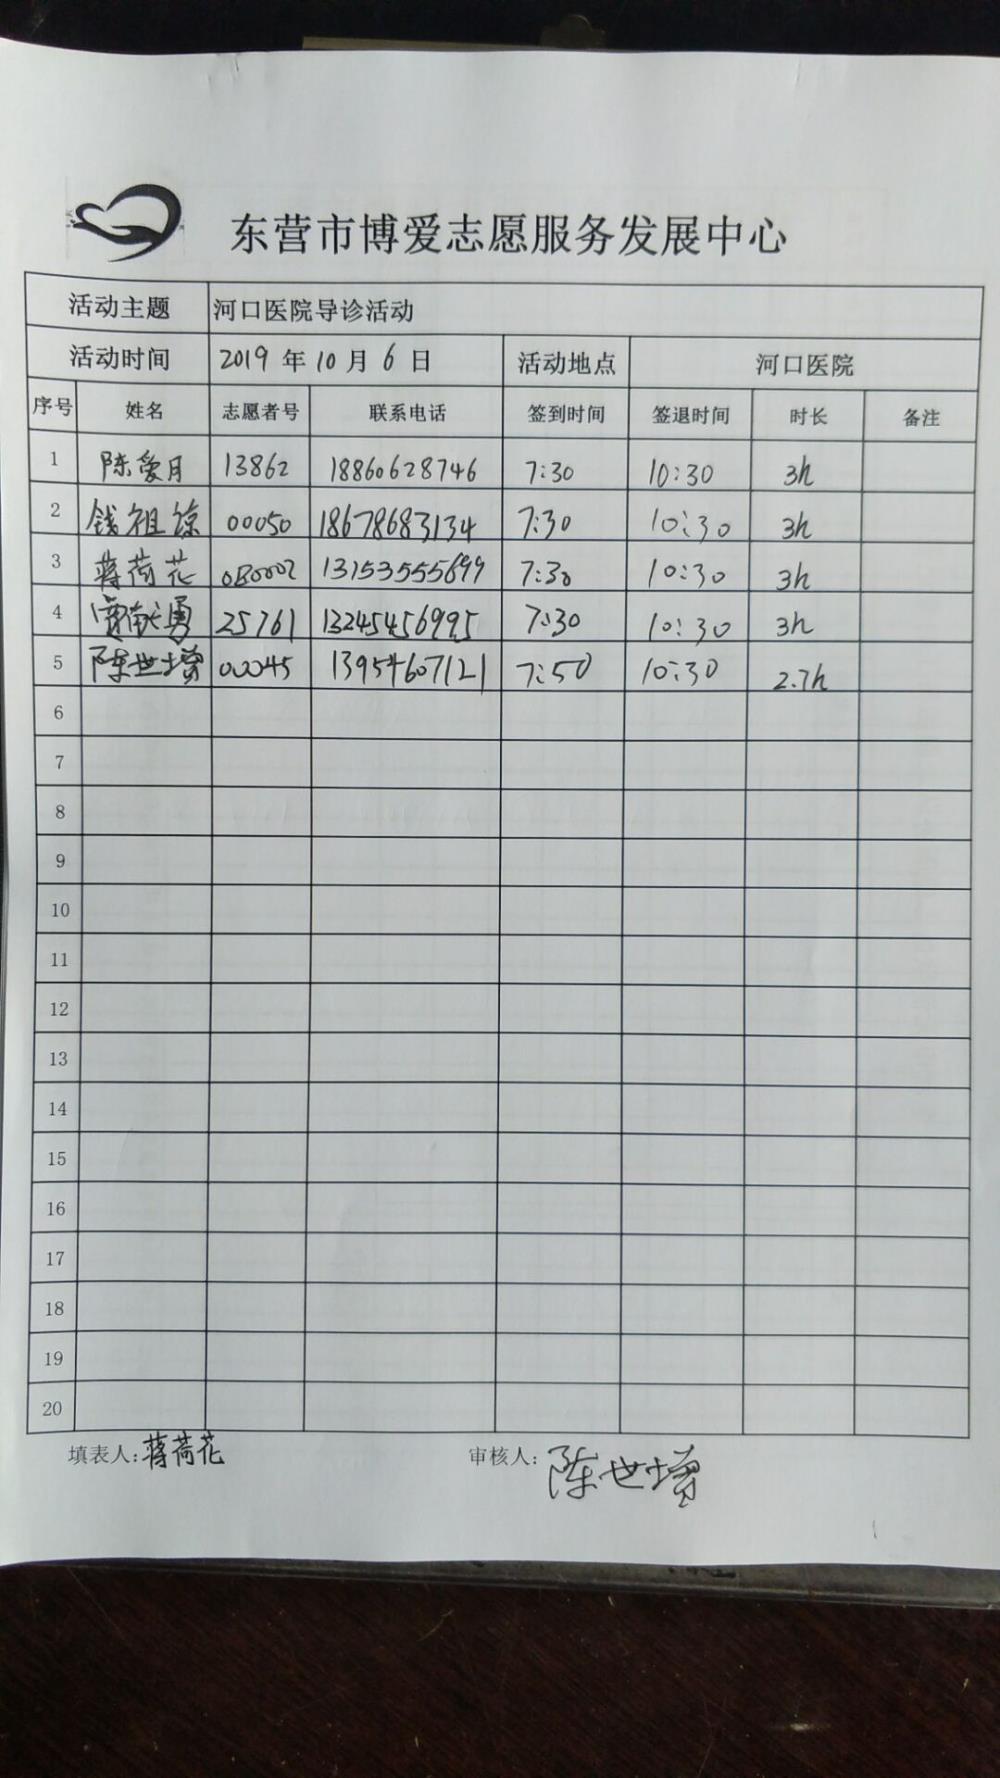 东营市博爱志愿服务发展中心
活动主题 河口医院导诊活动
活动时间 2019 年 10 月 6 日 活动地点 河口医院
序号 姓名 志愿者号 联系电话 签到时间 签退时间 时长 备注
1 陈爱月 13862 18860628746 7:30 10:30 3h
2 钱祖琼 00050 18678683134 7:30 10:30 3h
3 蒋荷花 080002 13153555699 7:30 10:30 3h
4 贾献勇 25761 13245456995 7:30 10:30 3h
5 陈世增 00045 13954607121 7:50 10:30 2.7h
6
7
8
9
10
11
12
13
14
15
16
17
18
19
20
填表人:蒋荷花 审核人:陈世增